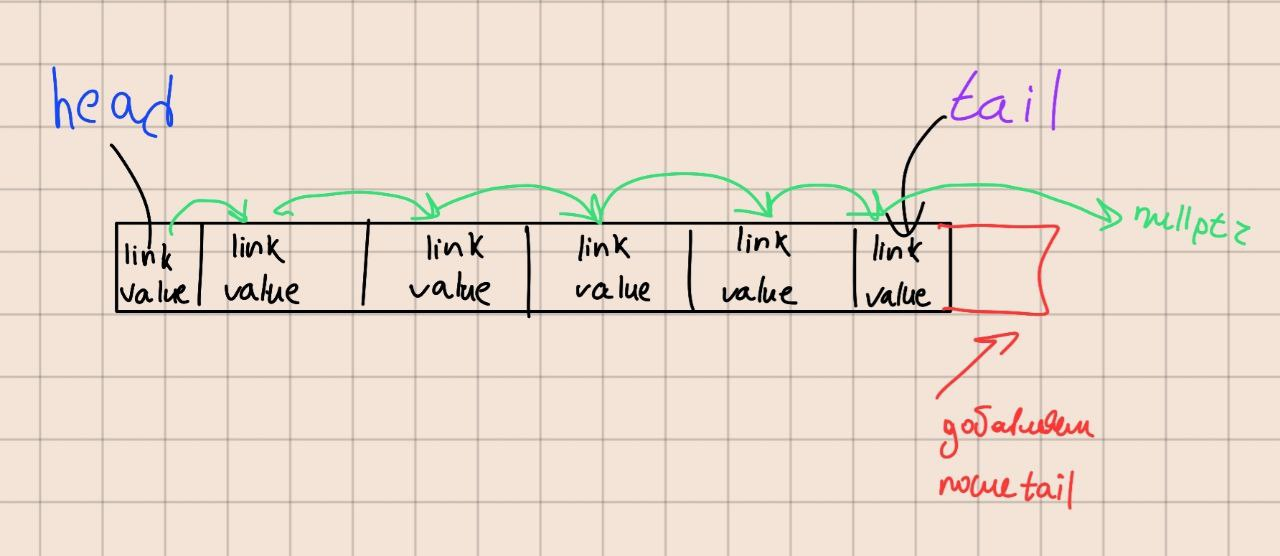 head
tail
nullptr
link
value
link
value
link
value
link
value
link
value
link
value
добавляем
после tail